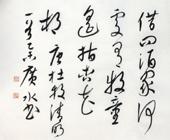 借问酒家何
處有牧童
遥指杏花
村 唐杜牧清明